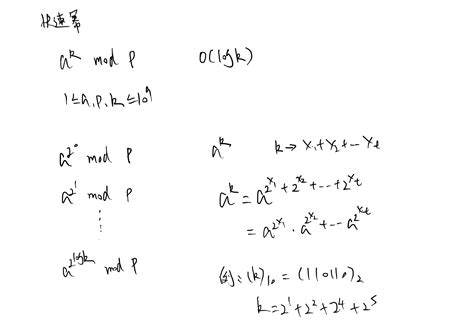 快速幂
a^k mod p O(logk)
1≤a,p,k≤10^9
a^{2^0} mod p
a^{2^1} mod p
⋮
a^{2^{logk}} mod p
a^k k→x_1+x_2+…x_t
a^k=a^{2^{x_1}+2^{x_2}+…+2^{x_t}}
=a^{2^{x_1}}·a^{2^{x_2}}+…a^{2^{x_t}}
例:(k)_{10}=(110110)_2
k=2^1+2^2+2^4+2^5